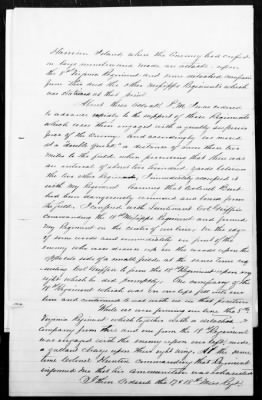 Harrison Island where the Enemy had crossed
in large numbers and made an attack upon
the 8th Virginia Regiment and some detached companies
from this and the other Mississippi Regiments which
was stationed at that point.
About three o'clock P.M. I was ordered
to advance rapidly to the support of these Regiments
which were then engaged with a greatly superior
force of the Enemy and accordingly we moved
at a double quick a distance of more than two
miles to the field, when perceiving that there was
an interval of about two hundred yards between
the two other Regiments, I immediately occupied it
with my Regiment learning that Colonel Burt
had been dangerously wounded and borne from
the field. I conferred with Lieutenant Col. Griffin
commanding the 18th Mississippi Regiment and formed
my Regiment on the centre of our lines on the edge
of some woods and immediately in front of the
enemy who was drawn up in the woods upon the
opposite side of a small field, at the same time
Col. Griffin to form the 18th Regiment upon my
right which he did promptly. One company of the
18th Regiment which was on our left fell into our
line and continued with us in that position
While we were forming our line the 8th
Virginia Regiment which together with a detached
company from this and one from the 18th Regiment
was engaged with the enemy upon our left, made
a gallant charge upon their right wing. At the same
time Colonel Hunton commanding that Regiment
informed me that his ammunition was exhausted
I then ordered the 17th & 18th Miss Regts